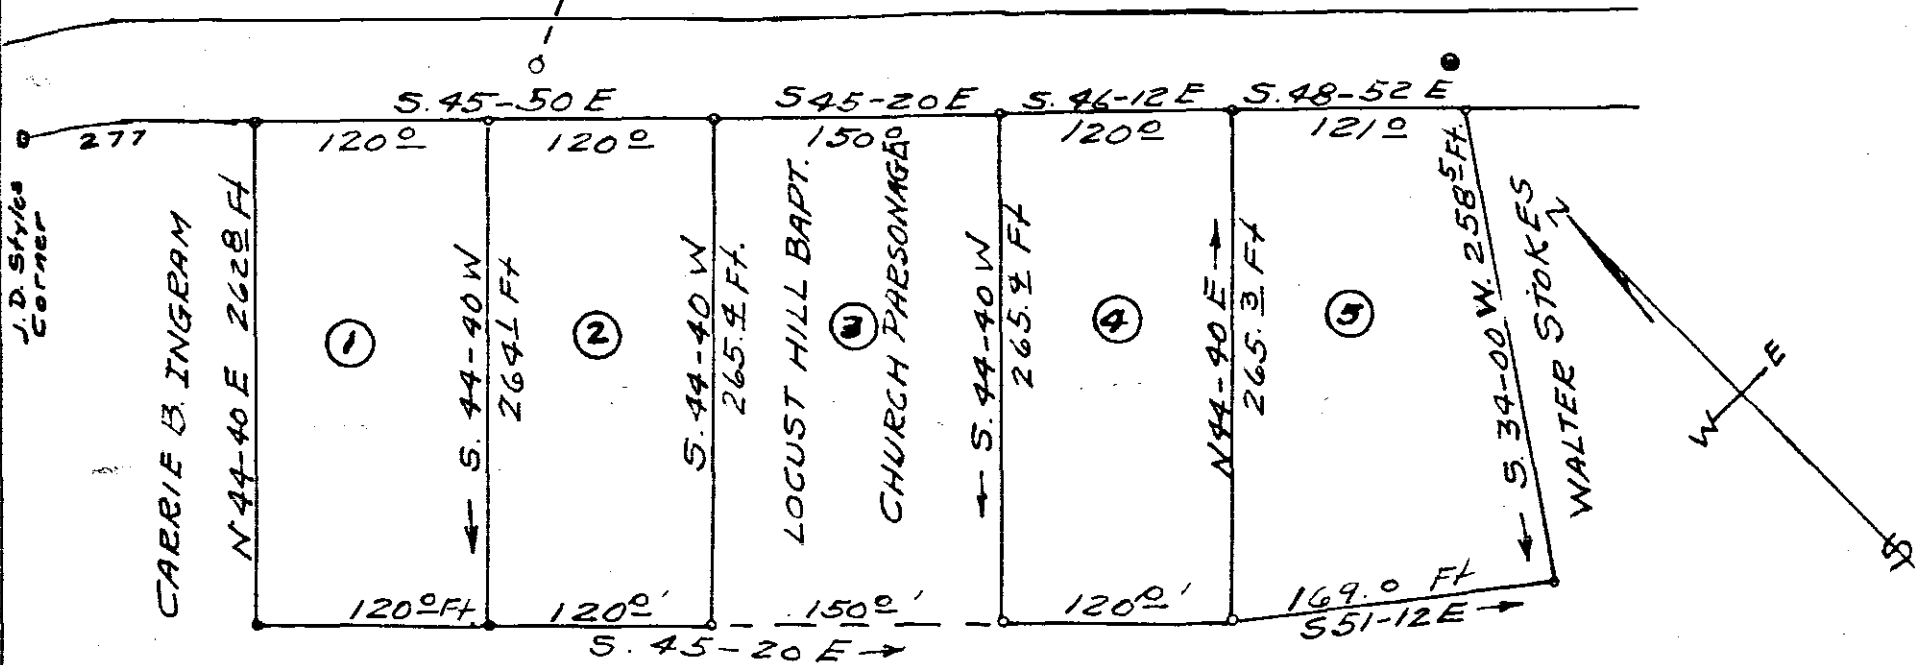 S. 45-50 E
S 45-20 E
S. 46-12 E
S. 48-52 E
277
120º
120º
150º
120º
121º
J. D. Styles
Corner
CARRIE B. INGRAM
N 44-40 E 262.8 Ft
1
S. 44-40 W
264.1 Ft
2
S. 44-40 W
265.4 Ft.
LOCUST HILL BAPT.
3
CHURCH PARSONAGE
← S. 44-40 W
265.4 Ft
4
N 44-40 E →
265.3 Ft
5
← S. 34-00 W. 258.5 Ft.
WALTER STOKES
N
E
W
S
120º Ft.
120º'
150º'
120º'
169.0 Ft
S 51-12 E →
S. 45-20 E →